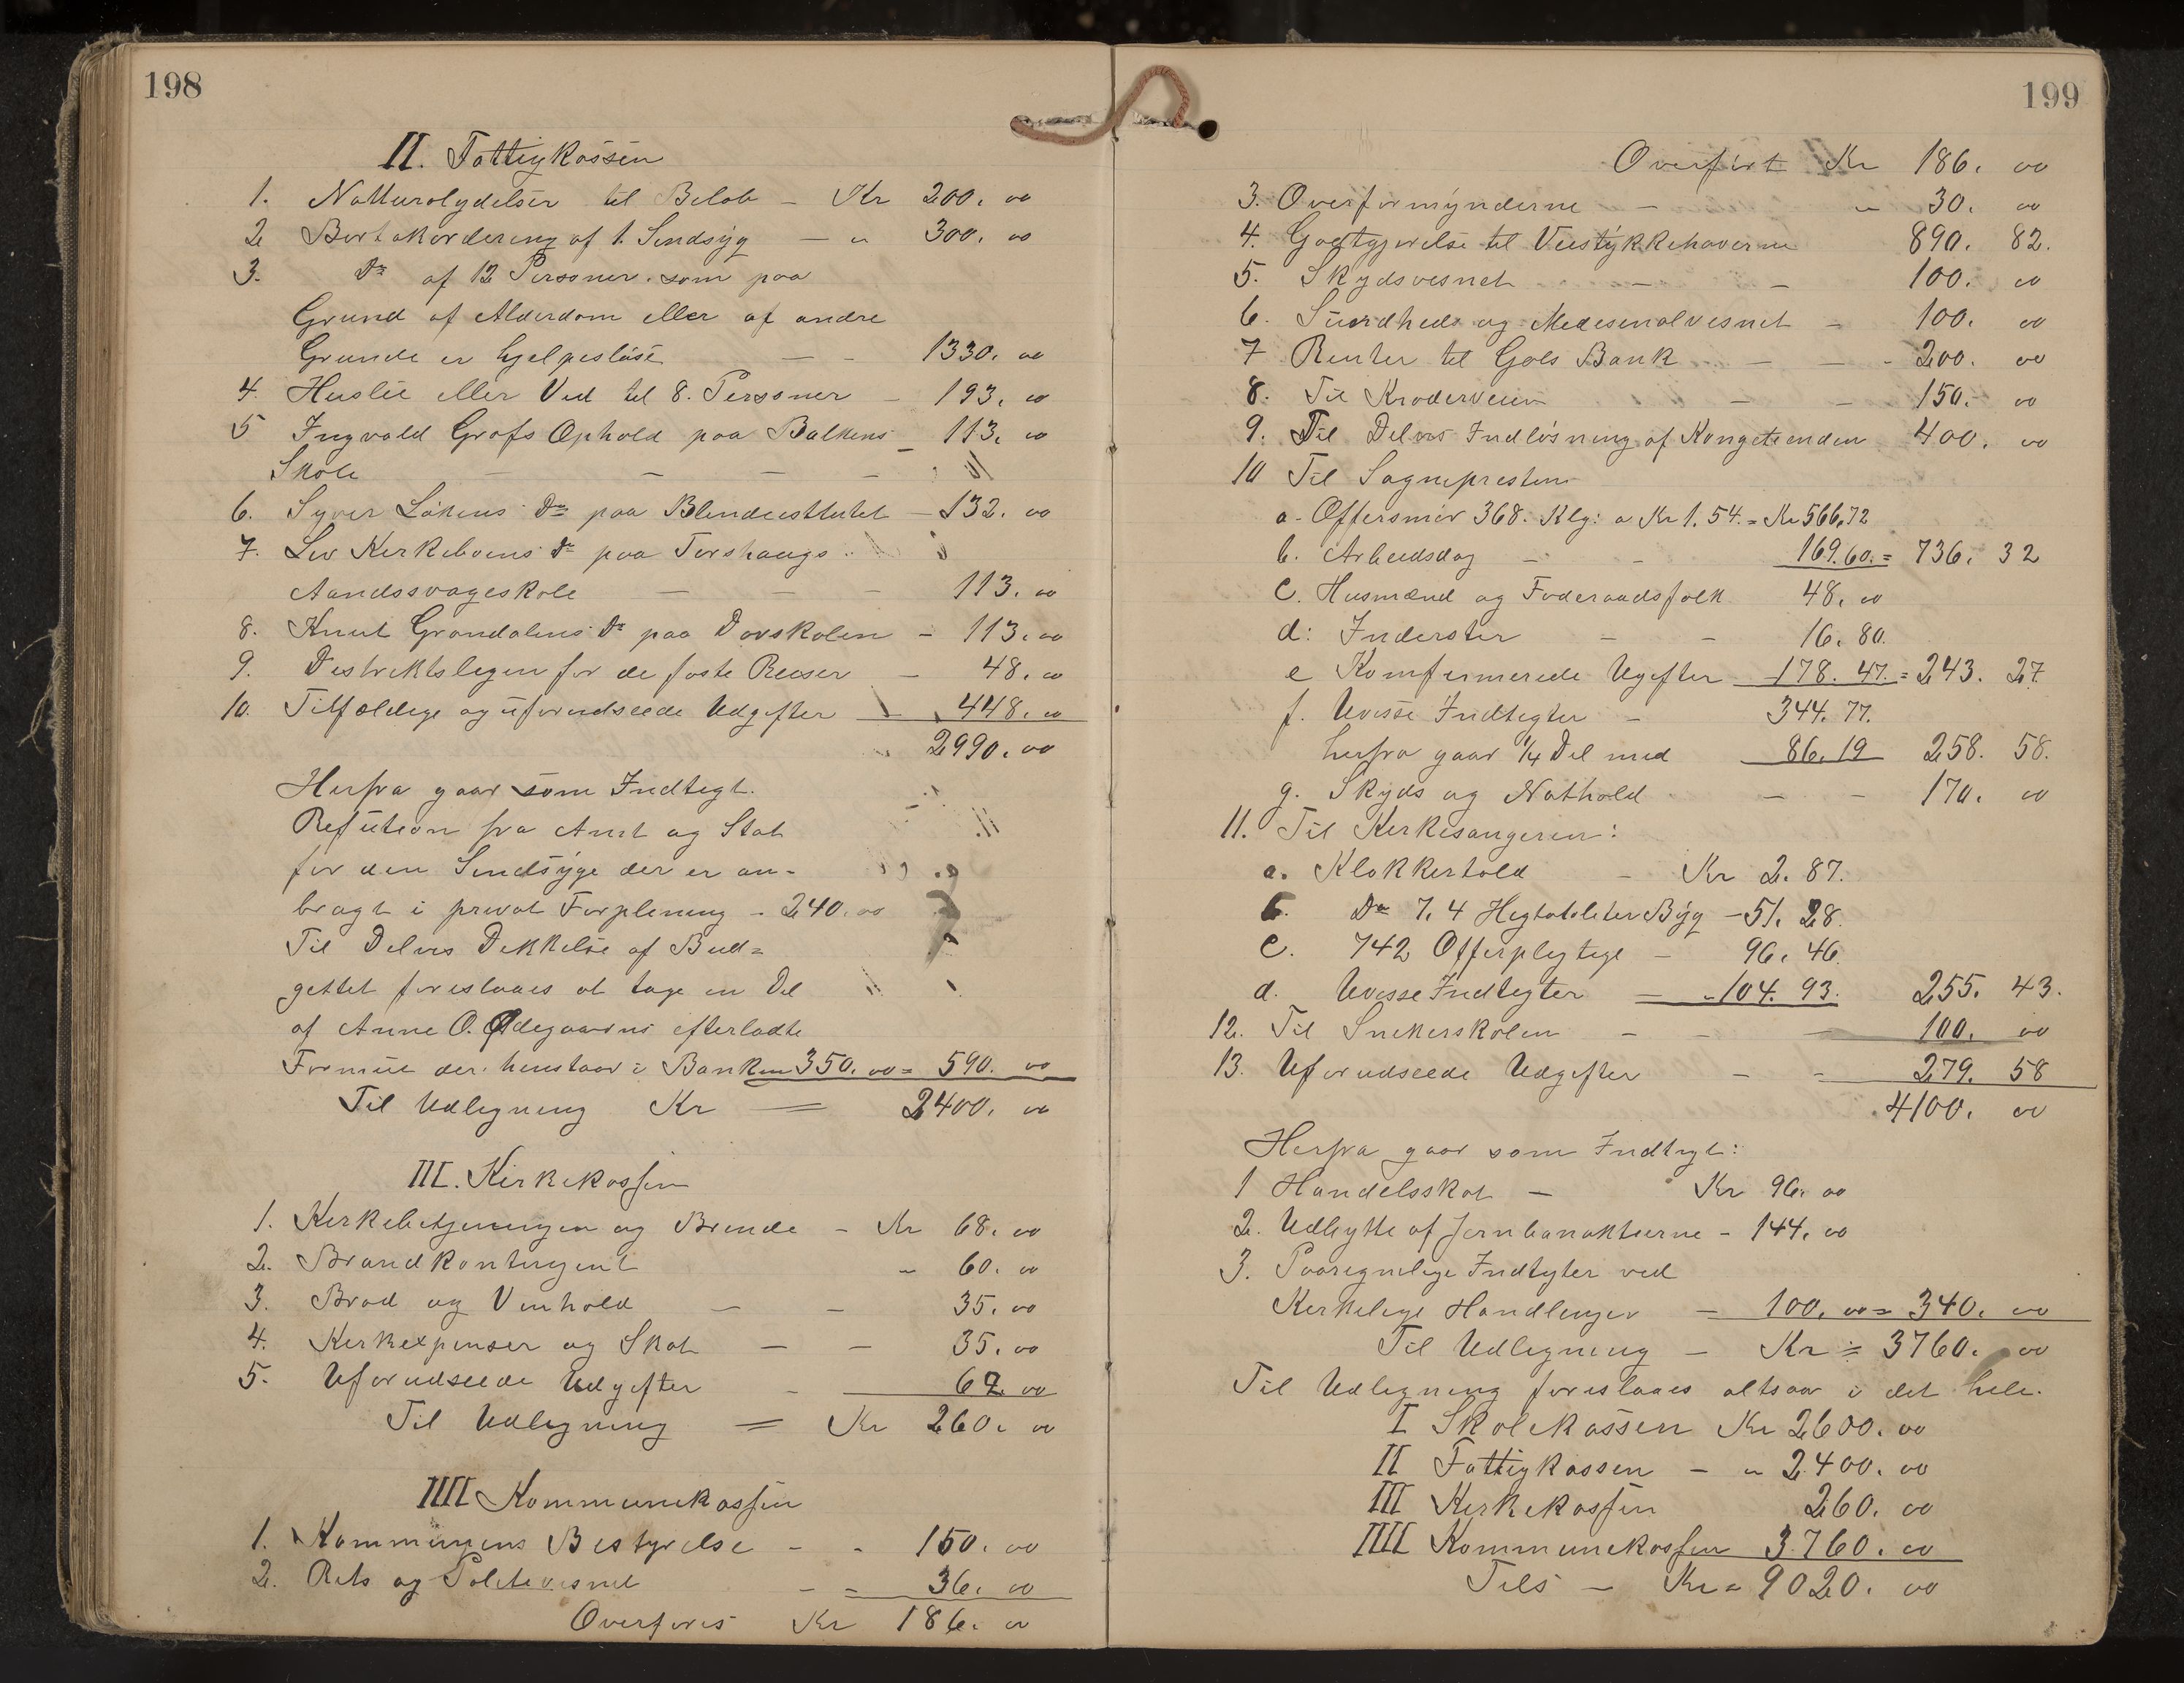 198
II. Fattigkassen
1. Natturalydelser til Beløb - Kr 200. 00
2 Bortakordering af 1. Sindsyg - " 300. 00
3. Do af 12 Personer som paa
Grund af Alderdom eller af andre
Grunde er hjelpesløse - - 1330. 00
4. Huslie eller Ved til 8. Personer - 193. 00
5 Ingvald Grøfs Ophold paa Balkens - 113. 00
Skole - - - -
6. Syver Løkens Do paa Blindeistutet - 132. 00
7. Lev Kirkeboens Do paa Torshaugs
Aandssvageskole - - - 113. 00
8. Knut Grøndalens Do paa Døvskolen - 113. 00
9. Distriktslegen for de faste Reiser - 48. 00
10. Tilfældige og uforudseede Udgifter - 448. 00
2990. 00
Herfra gaar som Indtegt.
Refution fra Amt og Stat
for den Sindsyge der er an-
bragt i privat Forplening - 240. 00
Til Delvis Dekkelse af Bud=
gettet foreslaaes at tage en Del
af Anne O. Ødegaards efterladte
Formue der henstaar i Banken 350. 00 = 590. 00
Til Udligning Kr = 2400. 00
III. Kirkekassen
1. Kirkebetjeningen og Brende - Kr 68. 00
2. Brandkontingent " 60. 00
3. Brød og Vinhold - - 35. 00
4. Kirkexpenser og Skat - - 35. 00
5. Uforudseede Udgifter - 62. 00
Til Udligning = Kr 260. 00
IIII Kommunekassen
1. Kommunens Bestyrelse - - 150. 00
2. Rets og Politivesnet - = 36. 00
Overføres Kr 186. 00
199
Overført Kr 186. 00
3. Overformynderne - " 30. 00
4. Godtgjørelse til Veistykkehaverne 890. 82.
5. Skydsvesnet - - 100. 00
6. Sundheds og Medesinalvesnet - 100. 00
7 Renter til Gols Bank - - - 200. 00
8. Til Krøderveien - - 150. 00
9. Til Delvis Indløsning af Kongetienden 400. 00
10 Til Sognepresten
a - Offersmør 368. Klg: a Kr 1. 54. = Kr 566,72
b. Arbeidsdag - - 169.60. = 736. 32
c. Husmænd og Foderaadsfolk 48. 00
d: Inderster - - 16. 80.
e Komfirmerede Ugifter 178. 47. = 243. 27.
f. Uvisse Indtegter - 344. 77.
herfra gaar 1/4 Del med 86. 19 258. 58.
g. Skyds og Nathold - - 170. 00
11. Til Kirkesangeren:
a. Klokkertold - Kr 2. 87.
b. Do 7. 4 Hegtoliter Byg - 51. 28.
c. 742 Offerplegtige - 96. 46.
d. Uvisse Indtegter = - 104. 93. 255. 43.
12. Til Snekerskolen - - 100. 00
13. Uforudseede Udgifter - - 279. 58
4100. 00
Herfra gaar som Indtegt:
1 Handelsskat - Kr 96. 00
2. Udbytte af Jernbanaktierne - 144. 00
3. Paaregnelige Indtegter ved
Kirkelige Handlinger = 100. 00 = 340. 00
Til Udligning - Kr = 3760. 00
Til Udligning foreslaaes altsaa i det hele.
I Skolekassen Kr 2600. 00
II Fattigkassen - " 2400. 00
III Kirkekassen 260. 00
IIII Kommunekassen 3760. 00
Tils - Kr = 9020. 00